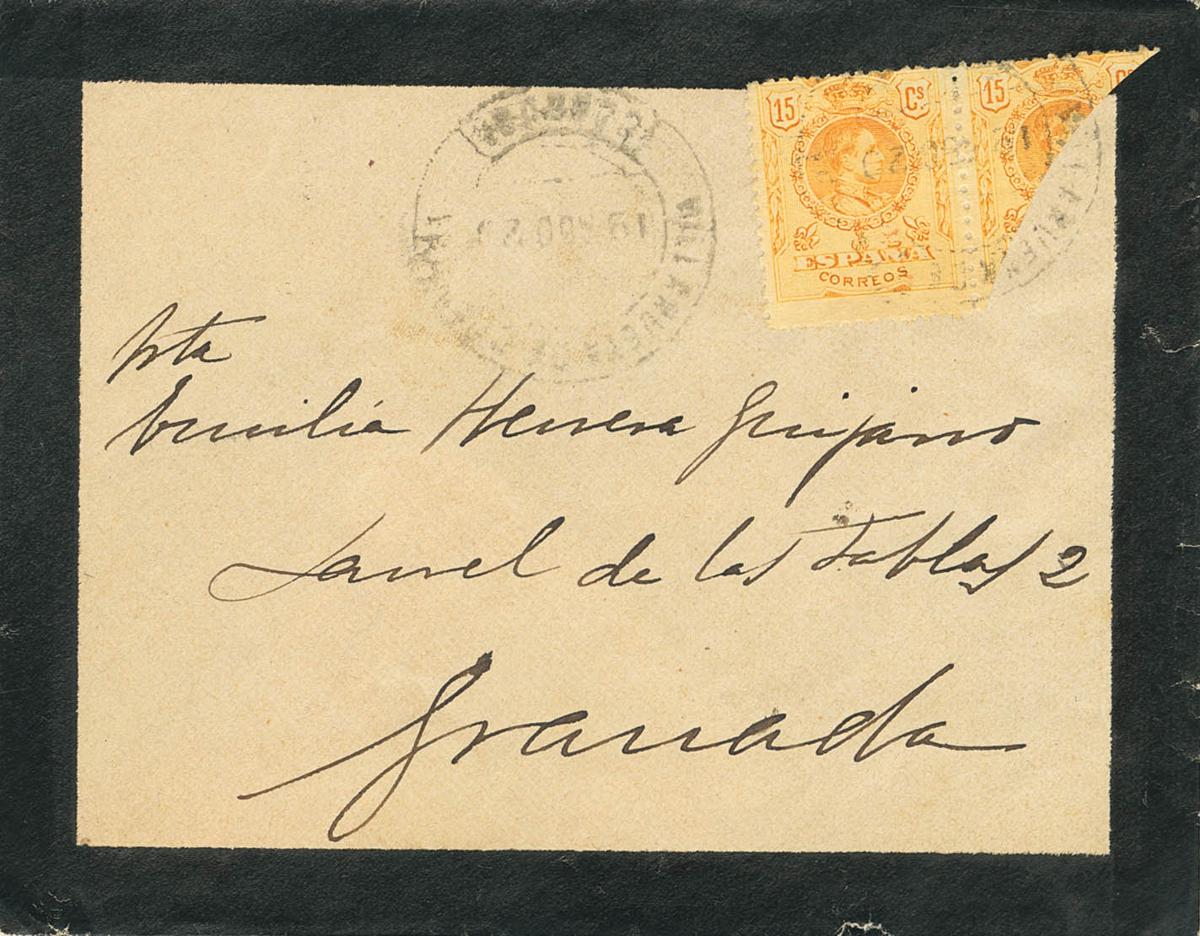 15 Cs 15
ESPAÑA
CORREOS
19 AGO 2
Srta
Emilia Herrera Quijano
Laurel de las Tablas 2
Granada